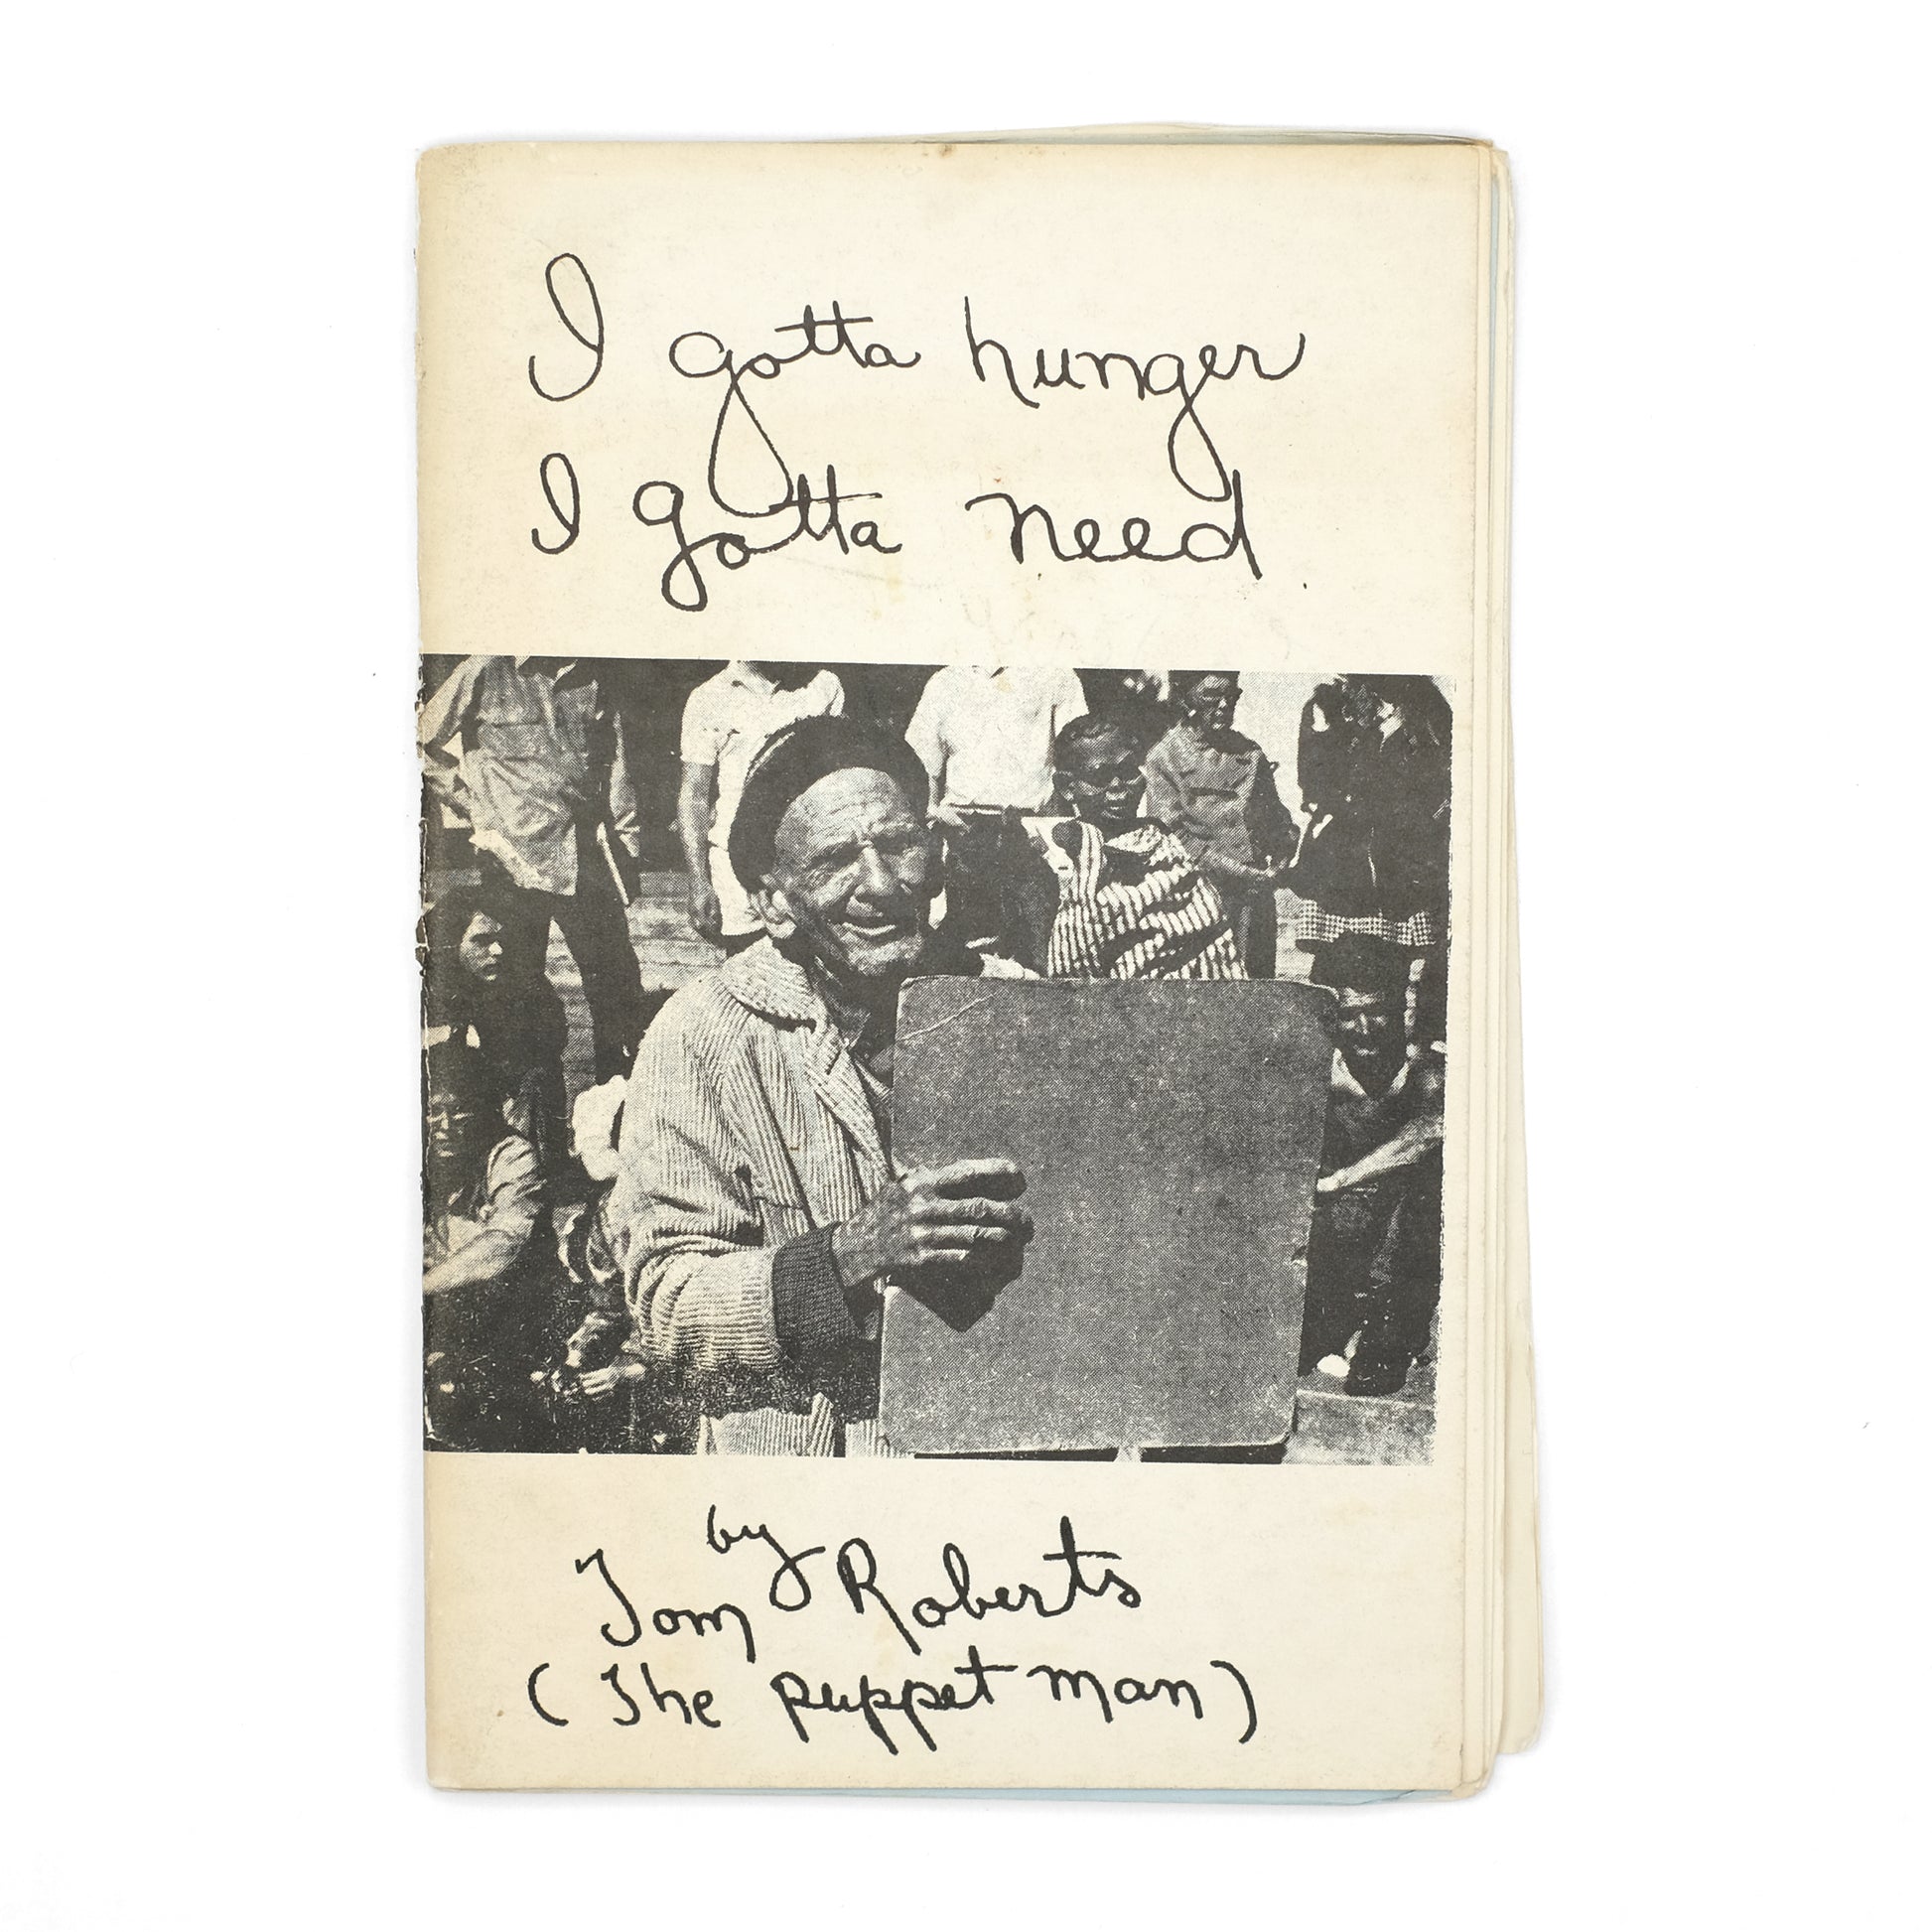 I gotta hunger
I gotta need.
by
Tom Roberts
(The puppet man)